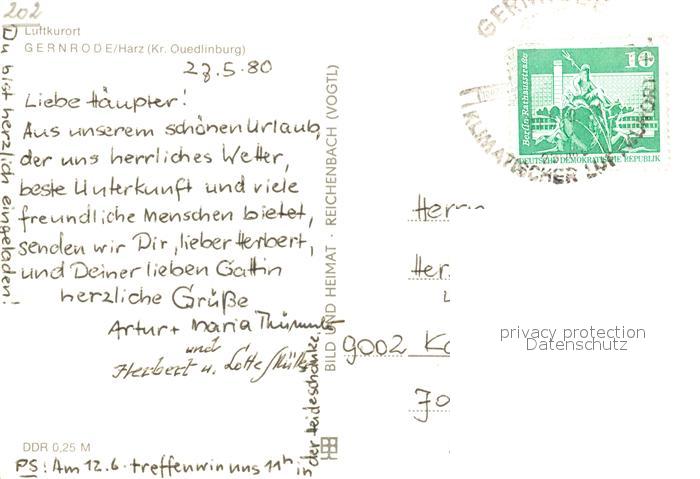 202
Luftkurort
GERNRODE/Harz (Kr. Quedlinburg)
23.5.80
Liebe Häupter!
Aus unserem schönen Urlaub,
der uns herrliches Wetter,
beste Unterkunft und viele
freundliche Menschen bietet,
senden wir Dir, lieber Herbert,
und Deiner lieben Gattin
herzliche Grüße
Artur + Maria
und
Herbert u. Lotte
DDR 0,25 M
PS: Am 12.6. treffen wir uns 11h in
der Heideschänke.
Du bist herzlich eingeladen!
BILD UND HEIMAT · REICHENBACH (VOGTL)
GERNRODE
KLIMATISCHER LUFTKURORT
10
Berlin, Rathausstraße
DEUTSCHE DEMOKRATISCHE REPUBLIK
Herrn
Her
9002 Ka
70
privacy protection
Datenschutz